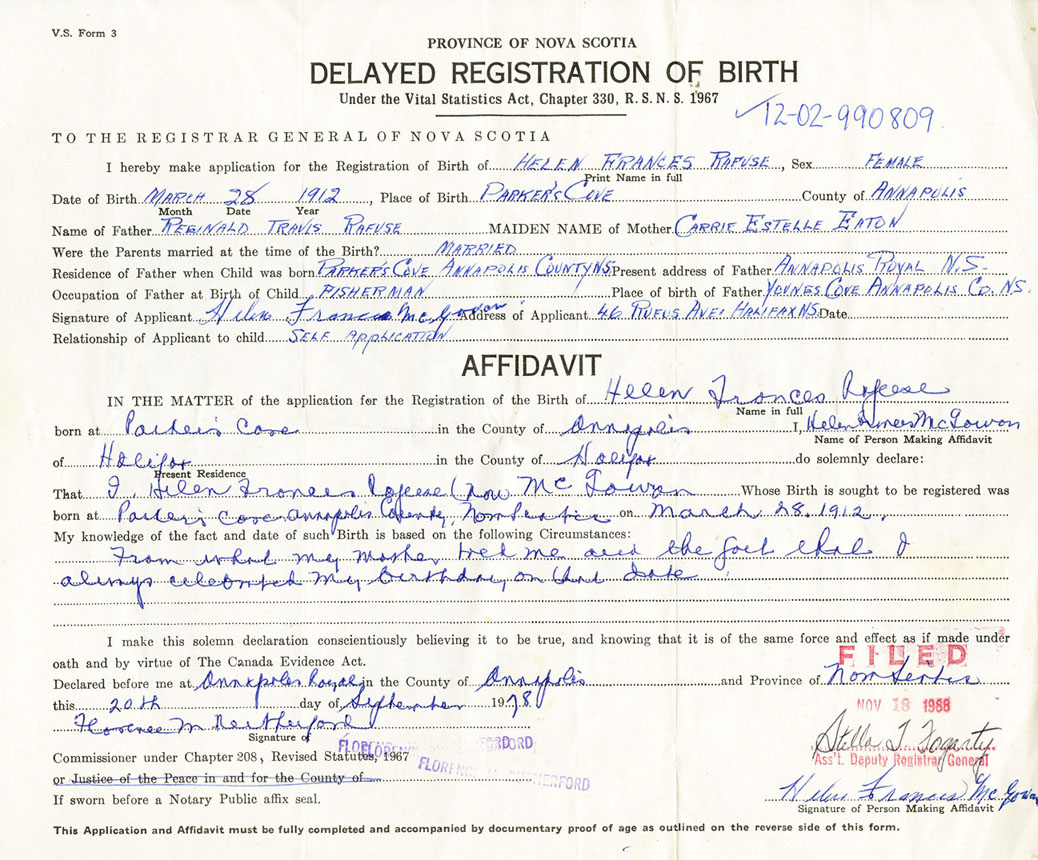 V.S. Form 3
PROVINCE OF NOVA SCOTIA
DELAYED REGISTRATION OF BIRTH
Under the Vital Statistics Act, Chapter 330, R.S.N.S. 1967
12-02-990809
TO THE REGISTRAR GENERAL OF NOVA SCOTIA
I hereby make application for the Registration of Birth of HELEN FRANCES RAFUSE, Sex FEMALE
Print Name in full
Date of Birth MARCH 28 1912, Place of Birth PARKER'S COVE County of ANNAPOLIS
Month Date Year
Name of Father REGINALD TRAVIS RAFUSE MAIDEN NAME of Mother CARRIE ESTELLE EATON
Were the Parents married at the time of the Birth? MARRIED
Residence of Father when Child was born PARKER'S COVE ANNAPOLIS COUNTY NS Present address of Father ANNAPOLIS ROYAL N.S.
Occupation of Father at Birth of Child FISHERMAN Place of birth of Father YOUNGS COVE ANNAPOLIS CO. NS.
Signature of Applicant Helen Francis McGowan Address of Applicant 46 RUFUS AVE. HALIFAX NS Date
Relationship of Applicant to child SELF APPLICATION
AFFIDAVIT
IN THE MATTER of the application for the Registration of the Birth of Helen Frances Rafuse
Name in full
born at Parker's Cove in the County of Annapolis I, Helen Frances McGowan
Name of Person Making Affidavit
of Halifax in the County of Halifax do solemnly declare:
Present Residence
That I, Helen Frances Rafuse (now McGowan Whose Birth is sought to be registered was
born at Parker's Cove Annapolis County, Nova Scotia on March 28, 1912.
My knowledge of the fact and date of such Birth is based on the following Circumstances:
From what my mother told me and the fact that I
always celebrated my birthday on that date.
I make this solemn declaration conscientiously believing it to be true, and knowing that it is of the same force and effect as if made under
oath and by virtue of The Canada Evidence Act.
FILED
Declared before me at Annapolis Royal in the County of Annapolis and Province of Nova Scotia
this 20th day of September 1978
NOV 18 1988
Florence M Rutherford
Signature of
Stella T Fogarty
Ass't. Deputy Registrar General
FLORENCE M. RUTHERFORD
Commissioner under Chapter 208, Revised Statutes, 1967
FLORENCE M. RUTHERFORD
or Justice of the Peace in and for the County of
Helen Francis McGowan
If sworn before a Notary Public affix seal.
Signature of Person Making Affidavit
This Application and Affidavit must be fully completed and accompanied by documentary proof of age as outlined on the reverse side of this form.